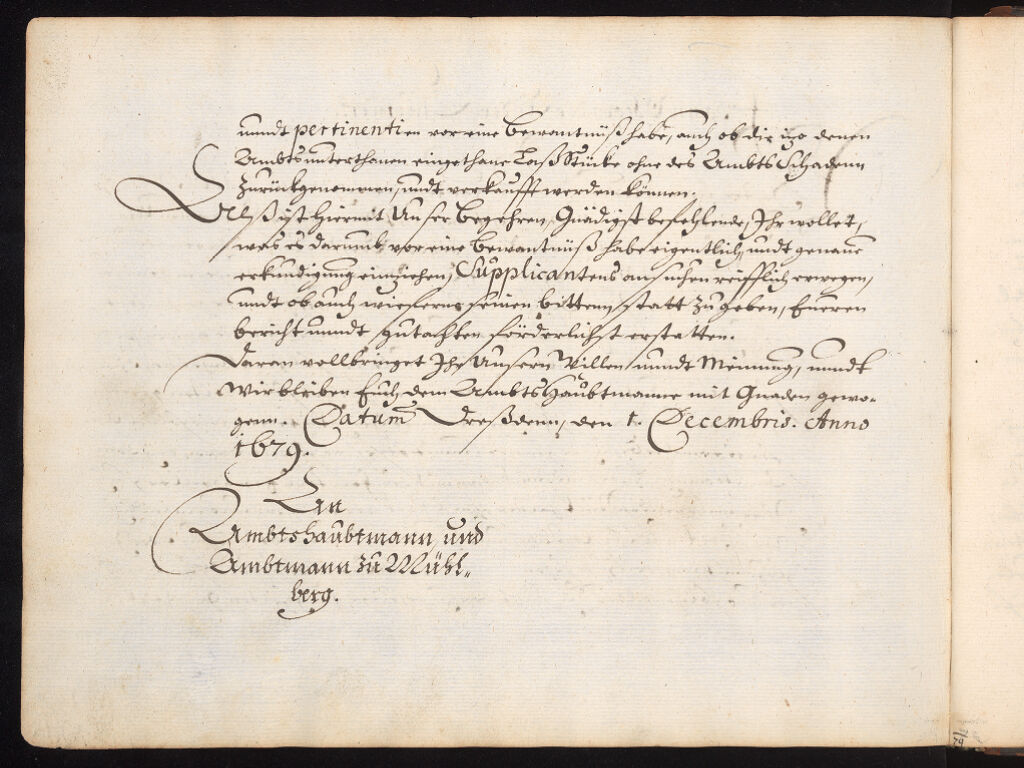 unndt pertinentien vor eine bewantnüß habe, auch ob die izo denen
Ambtsunterthanen eingethane Laß Stücke ohne des Ambts Schadenn
zurückgenommen, undt verkaufft werden können.
Alß ist hiermit Unser begehren, Gnädigst befehlende, Ihr wollet,
was es darumb, vor eine bewantnüß habe eigentlich, undt genaue
erkundigung einziehen, Supplicantens ansuchen reifflich erwegen,
undt ob auch wieferne seinen bittenn, statt zu geben, Eueren
bericht unndt gutachten förderlichst erstatten.
Daran vollbringet Ihr Unsern Willen unndt Meinung, unndt
Wir bleiben Euch, dem Ambts Haubtmanne mit Gnaden gewo-
genn. Datum Dreßdenn, den 1. Decembris. Anno
1679.
An
Ambtshaubtmann, und
Ambtmann zu Mühl-
berg.
79